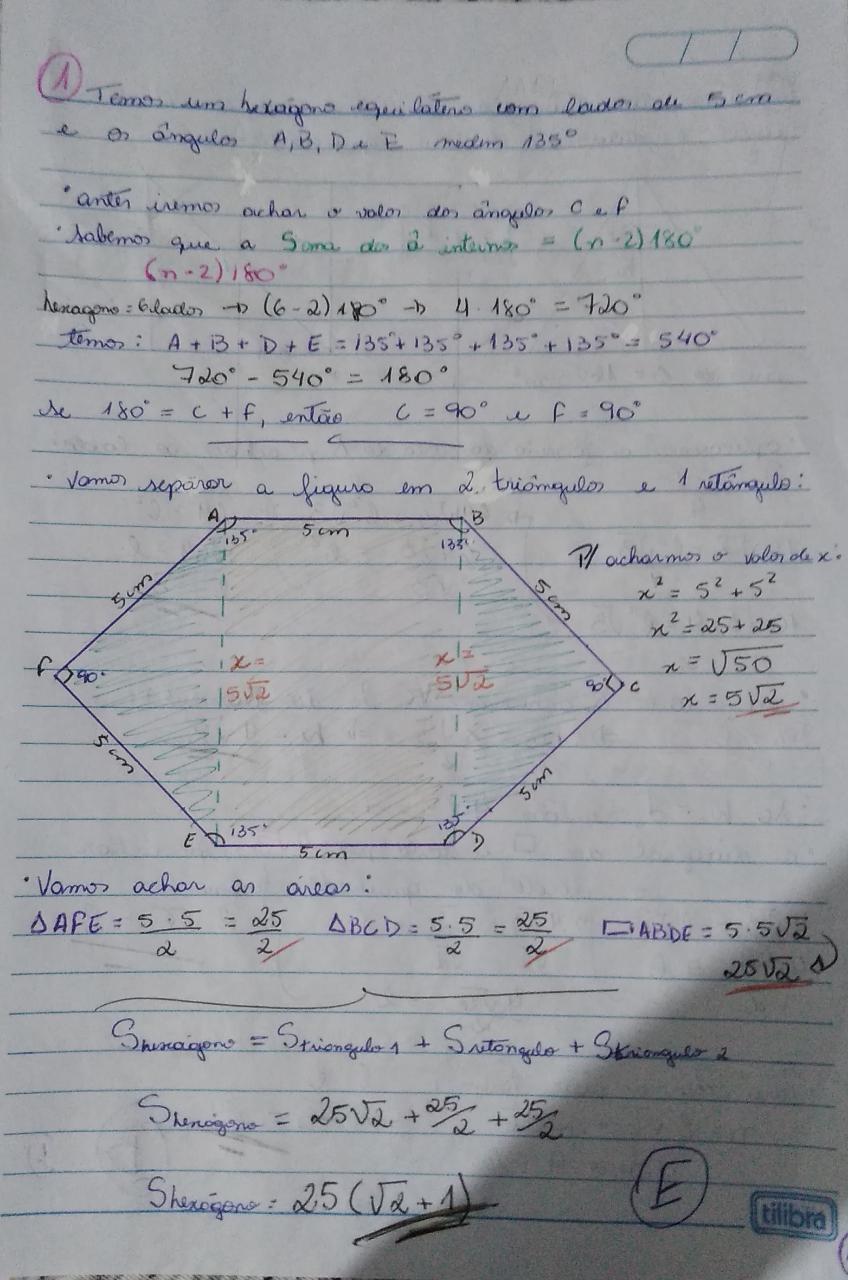 1 Temos um hexágono equilátero com lados de 5 cm
e os ângulos A, B, D e E medem 135°
• antes iremos achar o valor dos ângulos C e F
• Sabemos que a Soma dos â internos = (n-2)180°
(n-2)180°
hexagono = 6 lados → (6-2)180° → 4·180° = 720°
temos: A + B + D + E = 135° + 135° + 135° + 135° = 540°
720° - 540° = 180°
se 180° = C + F, então C = 90° e F = 90°
• Vamos separar a figura em 2 triângulos e 1 retângulo:
A B
135° 5cm 135°
P/ acharmos o valor de x:
x² = 5² + 5²
x² = 25 + 25
x = √50
x = 5√2
5cm 5cm
F 90° x = 5√2 x = 5√2 90° C
5cm 5cm
E 135° 135° D
5cm
• Vamos achar as áreas:
ΔAFE = 5·5/2 = 25/2 ΔBCD = 5·5/2 = 25/2 ▭ABDE = 5·5√2
25√2
Shexágono = Striangulo 1 + Sretângulo + Striangulo 2
Shexágono = 25√2 + 25/2 + 25/2
Shexágono = 25(√2 + 1)
E
tilibra